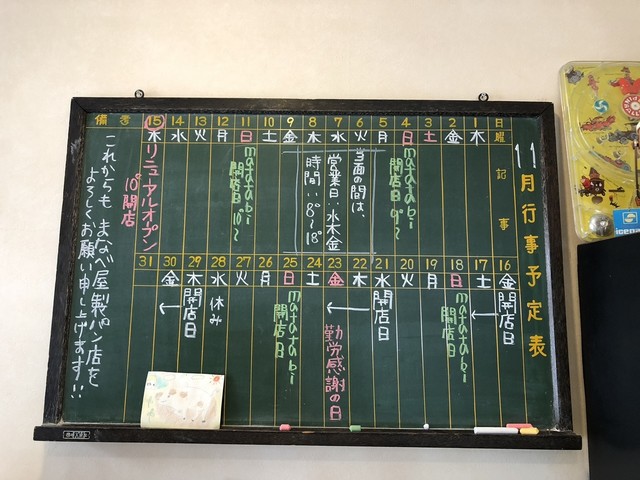 11月行事予定表
日 曜 記事
1 木
2 金
3 土
4 日 matatabi
開店日 9°~
5 月
6 火 3面の間は、
7 水 営業日:水木金
8 木 時間:8°~18°
9 金
10 土
11 日 matatabi
開店日 10°~
12 月
13 火
14 水
15 木 リニューアルオープン
10°開店
備考
16 金 開店日
17 土 ←
18 日 matatabi
開店日
19 月
20 火
21 水 開店日
22 木 ←
23 金 勤労感謝の日
24 土
25 日 matatabi
開店日
26 月
27 火
28 水 休み
29 木 開店日
30 金 ←
31
これからも まなべ屋製パン店を
よろしくお願い申し上げます!!